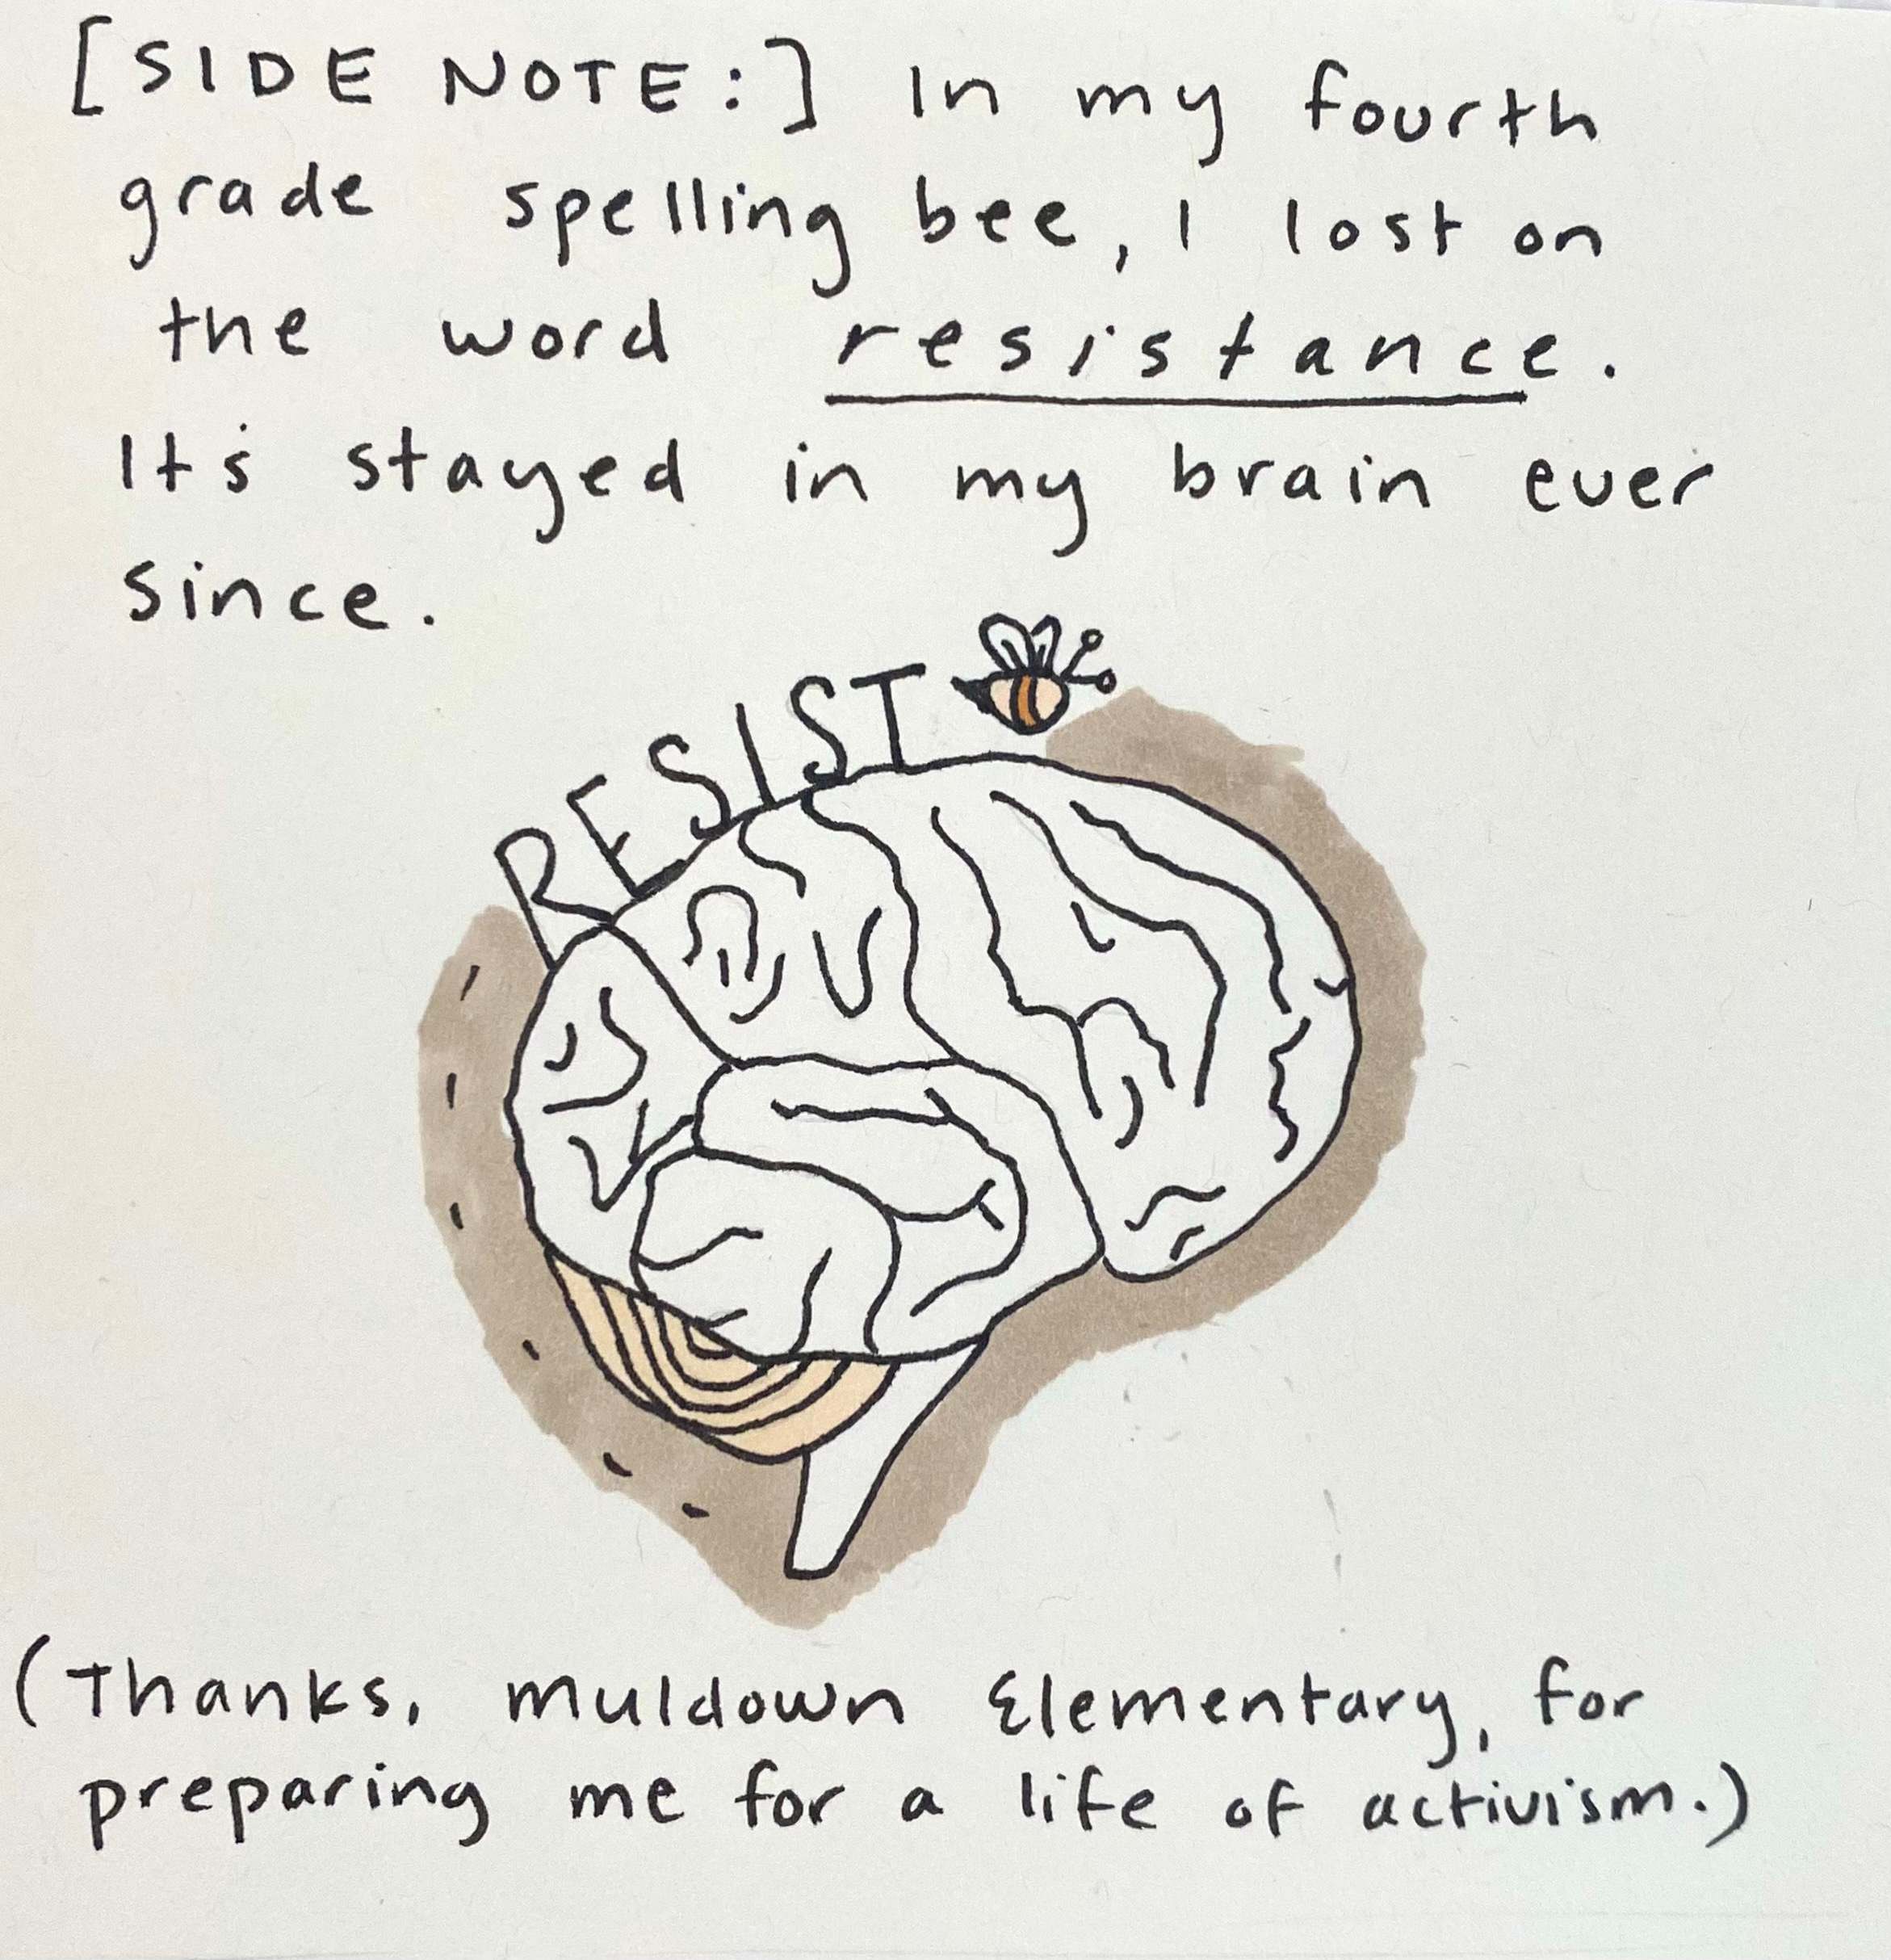 [SIDE NOTE:] In my fourth
grade spelling bee, I lost on
the word resistance.
It's stayed in my brain ever
since.
RESIST
(Thanks, Muldown Elementary, for
preparing me for a life of activism.)